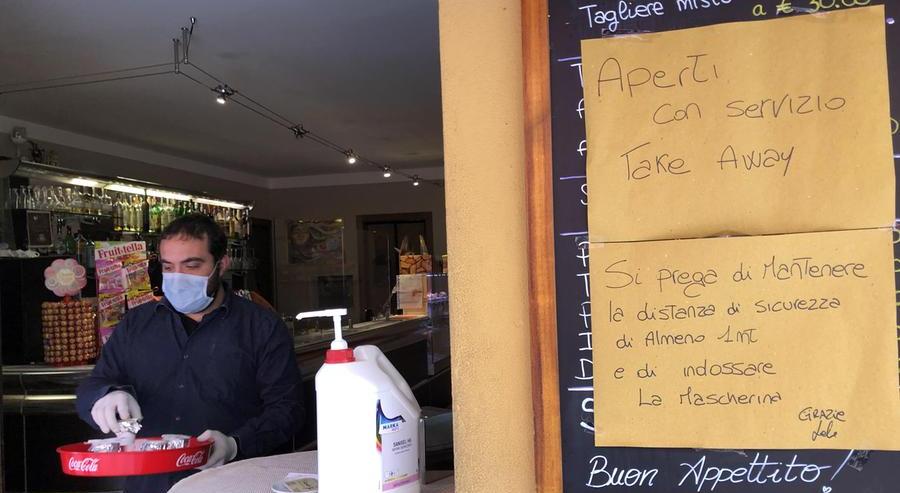 Tagliere misto
a € 30.00
Aperti
con servizio
Take Away
Si prega di Mantenere
la distanza di sicurezza
di Almeno 1mt
e di indossare
La Mascherina
GRAZIE
Buon Appettito!
Fruittella
Coca-Cola
Coca-Cola
MARKA
SANIGEL HG